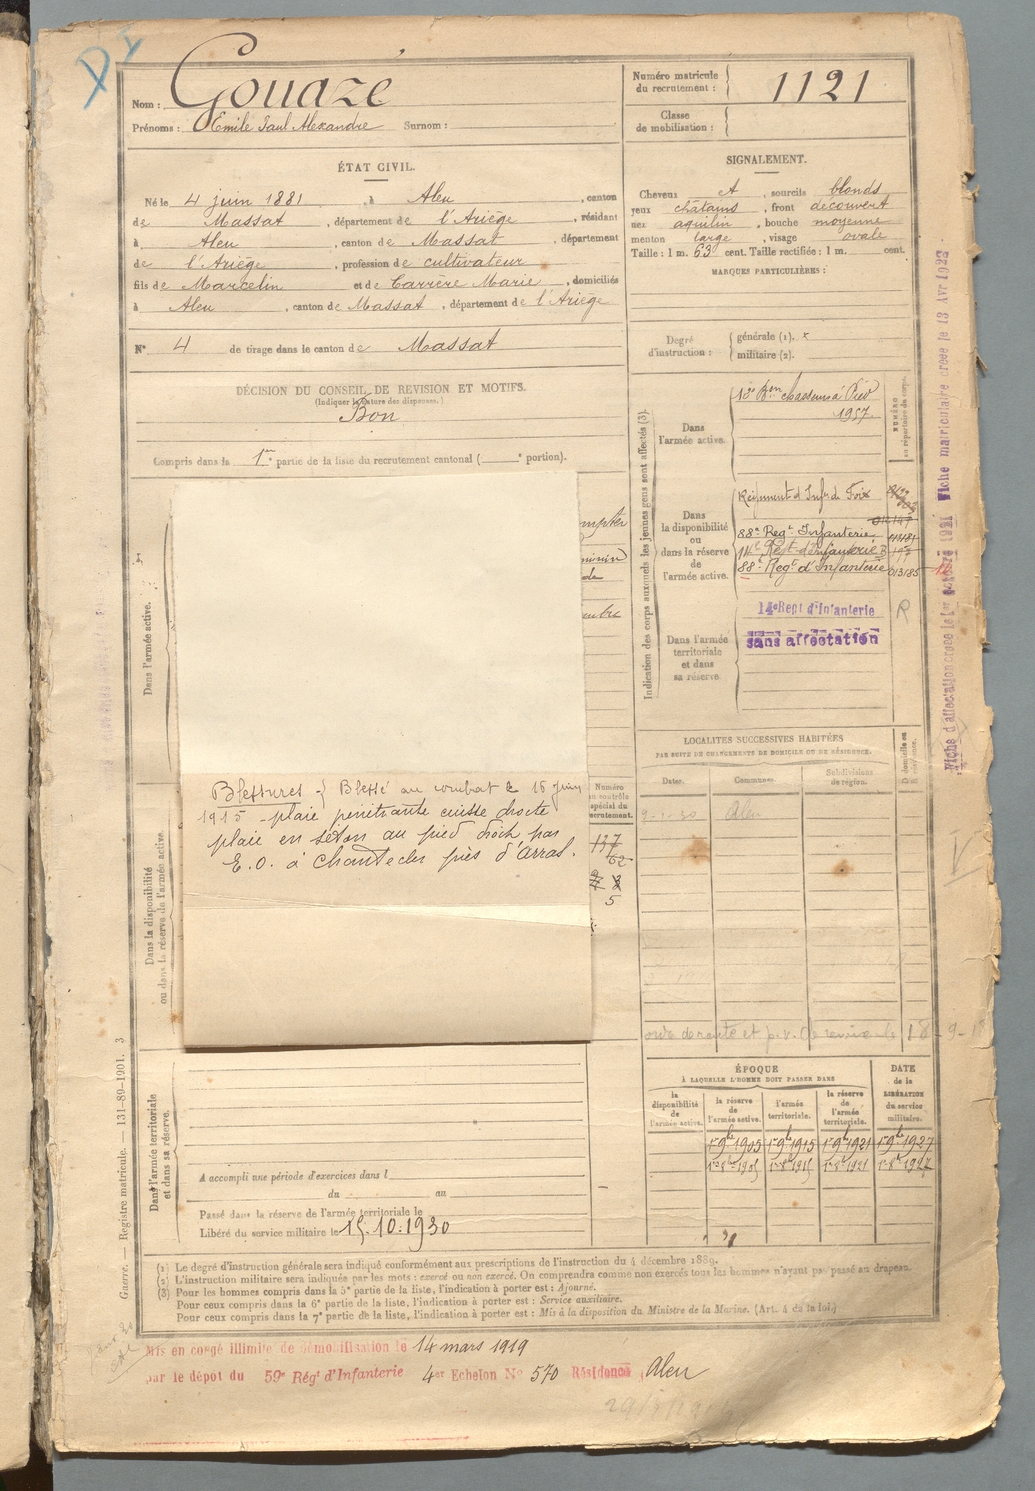 Nom : Gouazé
Prénoms : Emile Paul Alexandre Surnom :
Numéro matricule du recrutement : 1121
Classe de mobilisation :
ÉTAT CIVIL.
Né le 4 juin 1881, à Aleu, canton
de Massat, département de l'Ariège, résidant
à Aleu, canton de Massat, département
de l'Ariège, profession de cultivateur
fils de Marcelin et de Carrère Marie, domiciliés
à Aleu, canton de Massat, département de l'Ariège
N° 4 de tirage dans le canton de Massat
SIGNALEMENT.
Cheveux et, sourcils blonds
yeux châtains, front découvert
nez aquilin, bouche moyenne
menton large, visage ovale
Taille : 1 m. 63 cent. Taille rectifiée : 1 m. cent.
MARQUES PARTICULIÈRES :
Degré d'instruction : générale (1). x
militaire (2).
DÉCISION DU CONSEIL DE REVISION ET MOTIFS.
(Indiquer la nature des dispenses.)
Bon
Compris dans la 1re partie de la liste du recrutement cantonal ( e portion).
Indication des corps auxquels les jeunes gens sont affectés (3).
NUMÉRO au répertoire du corps.
Dans l'armée active.
chasseurs à Pied
1957
Dans la disponibilité ou dans la réserve de l'armée active.
Régiment d'Infie de Foix
88e Régt Infanterie
14e Régt d'Infanterie
88e Régt d'Infanterie 013185
14e Régt d'Infanterie
R
Dans l'armée territoriale et dans sa réserve.
sans affectation
Fiche d'affectation créée le 1er octobre 1921 Fiche matriculaire créée le 13 Avr 1922
Dans l'armée active.
Dans la disponibilité ou dans la réserve de l'armée active.
Blessures - { Blessé au combat le 16 juin
1915 - plaie pénétrante cuisse droite
plaie en séton au pied droit par
E. O. à Chantecler près d'Arras.
Numéro au contrôle spécial du recrutement.
137
62
5
LOCALITÉS SUCCESSIVES HABITÉES
PAR SUITE DE CHANGEMENTS DE DOMICILE OU DE RÉSIDENCE.
Dates. Communes. Subdivisions de région. D domicile ou R résidence.
Aleu
Dans l'armée territoriale et dans sa réserve.
A accompli une période d'exercices dans l
du au
Passé dans la réserve de l'armée territoriale le
Libéré du service militaire le 15.10.1930
ÉPOQUE
À LAQUELLE L'HOMME DOIT PASSER DANS
la disponibilité de l'armée active. la réserve de l'armée active. l'armée territoriale. la réserve de l'armée territoriale.
DATE de la LIBÉRATION du service militaire.
1er 9bre 1905 1er 9bre 1915 1er 9bre 1921 1er 9bre 1927
(1) Le degré d'instruction générale sera indiqué conformément aux prescriptions de l'instruction du 4 décembre 1889.
(2) L'instruction militaire sera indiquée par les mots : exercé ou non exercé. On comprendra comme non exercés tous les hommes n'ayant pas passé au drapeau.
(3) Pour les hommes compris dans la 5e partie de la liste, l'indication à porter est : Ajourné.
Pour ceux compris dans la 6e partie de la liste, l'indication à porter est : Service auxiliaire.
Pour ceux compris dans la 7e partie de la liste, l'indication à porter est : Mis à la disposition du Ministre de la Marine. (Art. 4 de la loi.)
Guerre. — Registre matricule. — 131-89-1901. 3
Mis en congé illimité de démobilisation le 14 mars 1919
par le dépôt du 59e Régt d'Infanterie 4er Echelon N° 570 Résidence Aleu